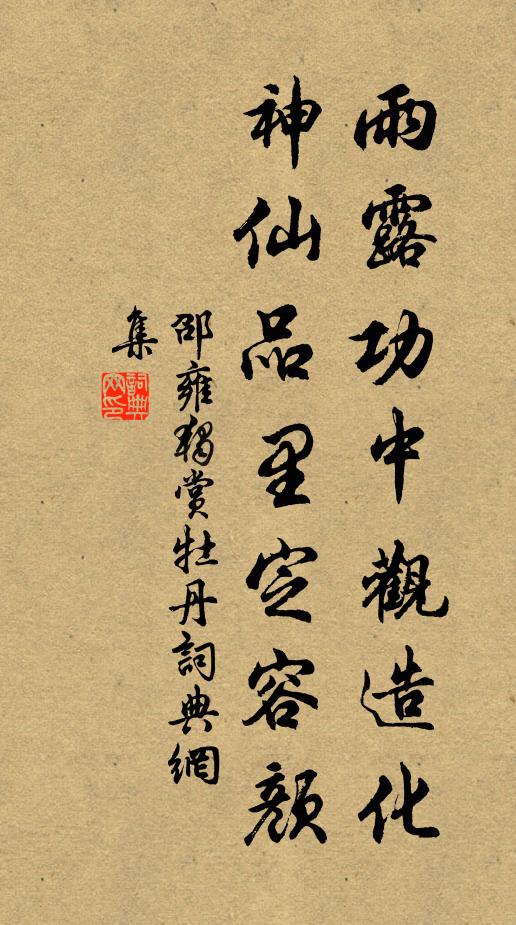 雨露功中觀造化
神仙品里定容顏
邵雍獨賞牡丹詞典網
集
詞典
網印